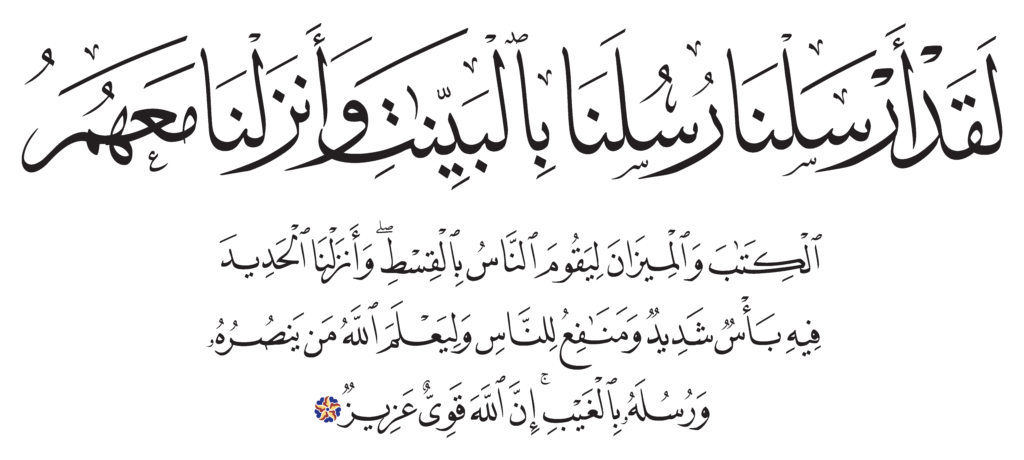 لَقَدْ أَرْسَلْنَا رُسُلَنَا بِٱلْبَيِّنَٰتِ وَأَنزَلْنَا مَعَهُمُ
ٱلْكِتَٰبَ وَٱلْمِيزَانَ لِيَقُومَ ٱلنَّاسُ بِٱلْقِسْطِ ۖ وَأَنزَلْنَا ٱلْحَدِيدَ
فِيهِ بَأْسٌ شَدِيدٌ وَمَنَٰفِعُ لِلنَّاسِ وَلِيَعْلَمَ ٱللَّهُ مَن يَنصُرُهُۥ
وَرُسُلَهُۥ بِٱلْغَيْبِ ۚ إِنَّ ٱللَّهَ قَوِىٌّ عَزِيزٌ